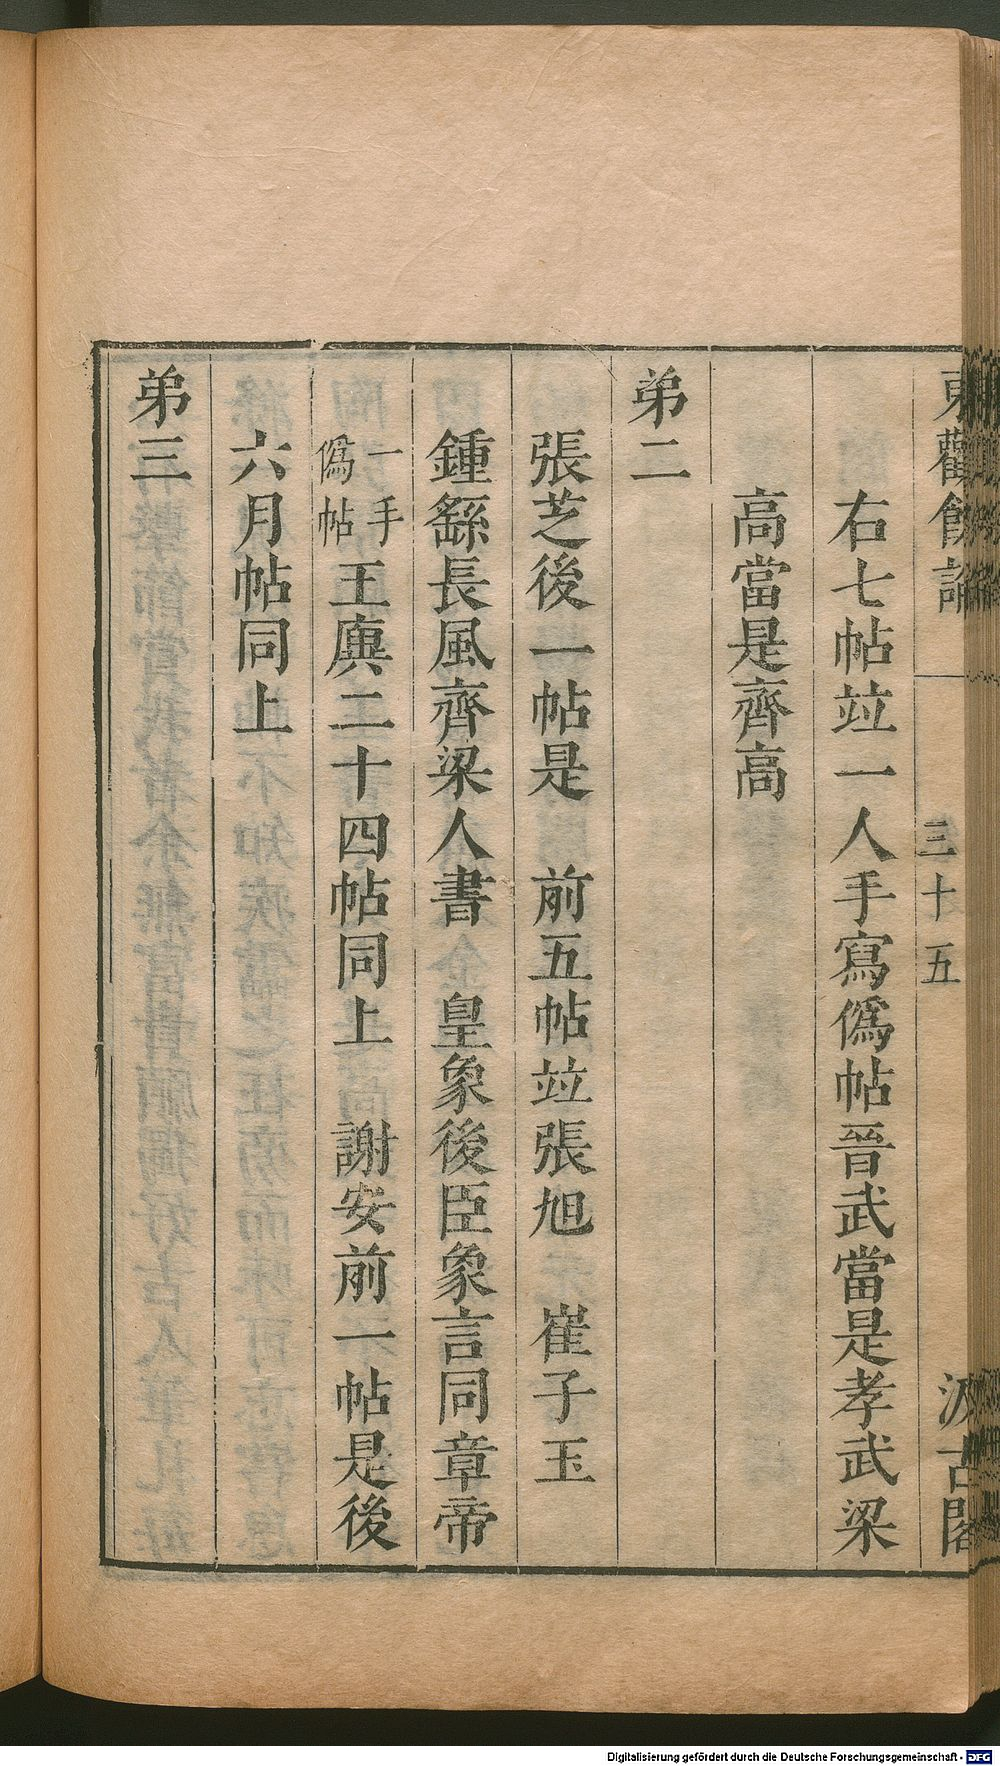 東觀餘論 三十五 汲古閣
右七帖竝一人手寫僞帖晉武當是孝武梁
高當是齊高
弟二
張芝後一帖是 前五帖竝張旭 崔子玉
鍾繇長風齊梁人書 皇象後臣象言同章帝
一手僞帖王廙二十四帖同上 謝安前一帖是後
六月帖同上
弟三
Digitalisierung gefördert durch die Deutsche Forschungsgemeinschaft - DFG